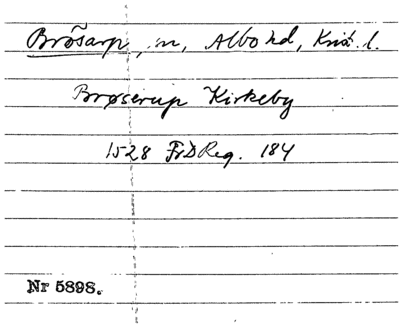 Brösarp, sn, Albo hd, Krist. l.
Brøserup Kirkeby
1528 FrDReg. 184
Nr 5898.